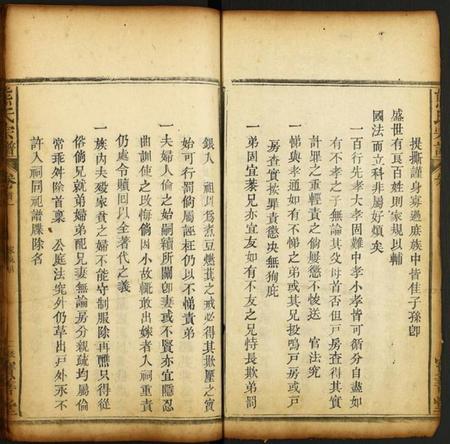 提撕謹身寡過庶族中皆佳子孫卽
盛世有良百姓則家規以輔
國法而立科非屬好煩矣
一百行先孝大孝固難中孝小孝皆可循分自盡如
有不孝之子無論其父母首否但戸房查得其實
計罪之重輕責之倘屢懲不悛送　官法究
一悌與孝通如有不悌之弟或其兄投鳴戸房或戸
房查實按罪責懲决無狥庇
一弟固宜恭兄亦宜友如有不友之兄恃長欺弟罰
銀入　祖以爲煮豆燃萁之戒必得其欺壓之實
始可行罰倘屬誣枉仍以不悌責弟
一夫婦人倫之始嗣續所關卽妻或不賢亦宜隱忍
曲訓使之改悔倘因小故輒敢出嫁者入祠重責
仍處令贖回以全著代之義
一族內夫殁家貧之婦不能守制服除再醮只得從
俗倘兄就弟婦弟配兄妻無論房分親疎均屬倫
常乖舛除首稟　公庭法究外仍草出戸外永不
許入祠同祀譜牒除名
氏宗譜
卷首